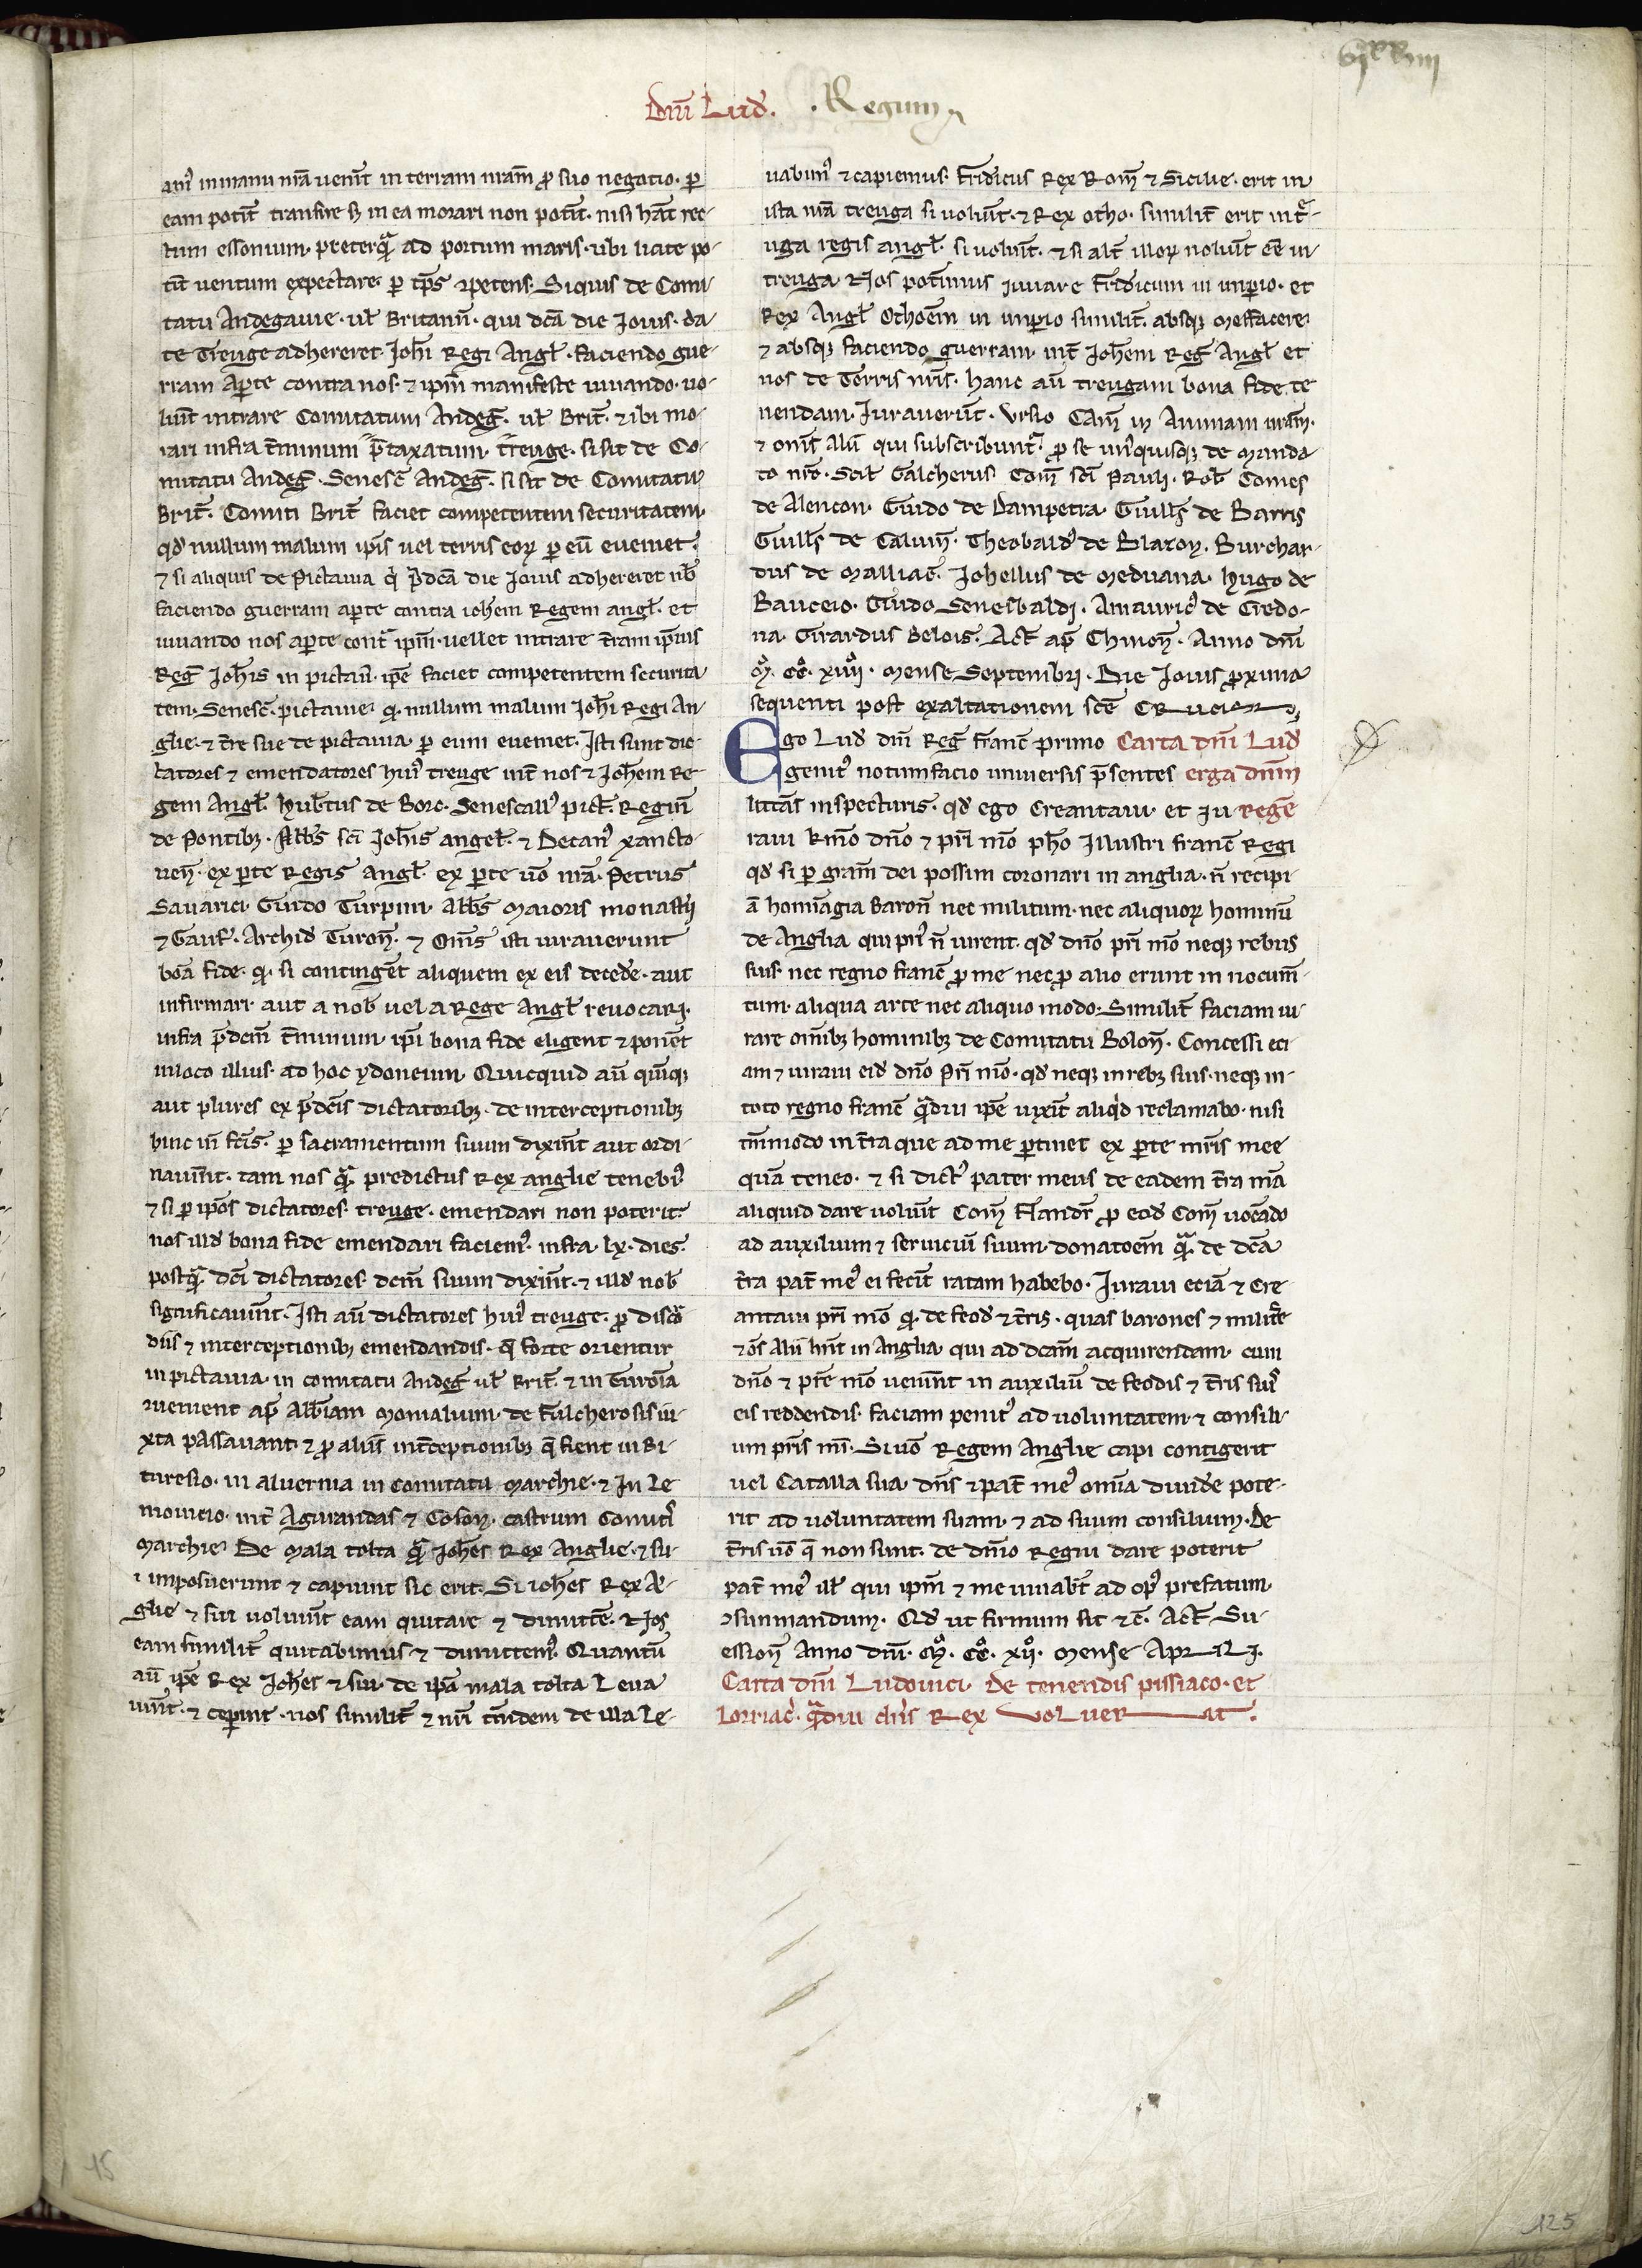 vjxxiiij
Dn̄i Lud̄. · Regum
ani᷒ in manu nr̄a uenīt in terram nr̄am ꝓ suo negotio· ꝑ
eam potīt transire sȝ in ea morari non potīt· nisi hāt rec-
tum essonium· preterqᷓ ad portum maris· ubi licite po-
tīt uentum expectare· ꝑ tp̄s ꝯpetens· Siquis de Comi-
tatu Andegauie· uł Britann̄· qui dc̄a die Iouis· da-
te Treuge adhereret Joh̄i Regi Angł· faciendo gue-
rram aꝑte contra nos· ⁊ ip̄m manifeste iuuando· uo-
luīt intrare Comitatum Andeḡ· uł Brit̄· ⁊ ibi mo-
rari infra t̄minum p̄taxatum t̄reuge· si sit de Co-
mitatu Andeḡ· Senesc̄ Andeḡ· si sit de Comitatu
Brit̄· Comiti Brit̄ faciet competentem securitatem·
qd̄ nullum malum ip̄is uel terris eoꝝ ꝑ eū eueniet·
⁊ si aliquis de Pictauia q̇ p̄dc̄a die Iouis adhereret nb̄
faciendo guerram aꝑte contra ioh̄em Regem angł· et
iuuando nos aꝑte contᷓ ip̄m· uellet intrare t̄ram ip̄ius
Reḡ Joh̄is in pictau̅· ip̄e faciet competentem securita
tem· Senesc̄· pictauie· ꝙ· nullum malum Joh̄i Regi An-
glie· ⁊ t̄re sue de pictauia· ꝑ eum eueniet· Isti sunt dic-
tatores ⁊ emendatores hui᷒ treuge int̄ nos ⁊ Joh̄em Re-
gem Angł· hub̄tus de Borc· Senescall᷒ pict̄· Regin̄
de Pontibꝫ· Abb̄s sc̄i Joh̄is angeł· ⁊ Decan᷒ xancto-
nen̄· ex ꝑte Regis Angł· ex ꝑte uo̅ nr̄a· Petrus
Sauarici· Guido Turpini· Abb̄s Maioris monast̄ij
⁊ Gaufr̄· Archid̄ Turon̄· ⁊ Om̄s isti iurauerunt
bo̅a fide· ꝙ· si contingēt aliquem ex eis deced̄e· aut
infirmari· aut a nob̄ uel a Rege Angł reuocari·
infra p̄dcm̄ t̄minum· ip̄i bona fide eligent ⁊ ponēt
in loco illius· ad hoc ydoneum· Quicquid aū quīqꝫ
aut plures ex p̄dc̄is dictatoribꝫ· de interceptionibꝫ
hinc in̄ fc̄is· ꝑ sacramentum suum dixīnt aut ordi-
nau̅int· tam nos qᷓ predictus Rex anglie tenebi᷒
⁊ si ꝑ ip̄os dictatores treuge· emendari non poterit·
nos illd̄ bona fide emendari faciem᷒· infra· lx· dies·
postqᷓ· dc̄i dictatores· dcm̄ suum dixīnt· ⁊ illd̄ nob̄
significauīnt· Isti aū dictatores hui᷒ treuge· ꝓ discᷓ-
diis ⁊ interceptionibꝫ emendandis· q̄ forte orientur
in pictauia· in comitatu Andeḡ uł Brit̄· ⁊ in Turōīa
ꝯuenient ap̄ Abb̄iam Monialium· de Fulcherosis iu-
xta passauant· ⁊ ꝓ aliis int̄ceptionibꝫ q̄ fient in Bi-
turesio· in aluernia in Comitatu Marchie· ⁊ In Le
mouicio· int̄ Agurandas ⁊ Coson· castrum Comit᷒
Marchie· De mala tolta qᷓ Joh̄es Rex Anglie· ⁊ su-
i imposuerunt ⁊ capiunt sic erit· Si ioh̄es Rex Ā-
glie ⁊ sui uoluīnt eam quitare ⁊ dimitt̄e· ⁊ Nos
eam similit̄ quitabimus ⁊ dimittem᷒· Quantū
aū ip̄e Rex Joh̄es ⁊ sui· de ip̄a mala tolta Leua
uīnt· ⁊ ceꝑint· nos similit̄ ⁊ nr̄i tm̄dem de illa le-
uabim᷒ ⁊ capiemus· Fridicus Rex Rom̄ ⁊ Sicilie· erit in
ista nr̄a treuga si uoluīt· ⁊ Rex Otho· similit̄ erit in tᷓ-
uga regis angł· si uoluīt· ⁊ si alt̄ illoꝝ noluīt eē in
treuga Nos pot̄imus iuuare Fridicum in impio· et
Rex Angł Othoēm in imꝑio similit̄· absqꝫ meffacere·
⁊ absqꝫ faciendo guerram· int̄ Joh̄em Reḡ Angł et
nos de Terris nr̄is· hanc aū treugam bona fide te
nendam· Iurauerūt· Vrsio Cam̄ in Animam nr̄am·
⁊ om̄s alii qui subscribuntᷓ· ꝓ se un᷒quisqꝫ de manda
to nr̄o· Scił Galcherus Com̄ sc̄i Pauli· Rob̄ Comes
de Alencon· Guido de Dampetra· Guill̄s de Barris
Guill̄s de Caluin̄· Theobald᷒ de Blazon· Burchar-
dus de Malliac̄· Johellus de Meduana· Hugo de
Bauceio· Guido Senesbaldi· Amauric᷒ de Credo-
na· Girardus Belois· Act̄ ap̄ Chinon̄· Anno dn̄i
M̊· cc̊· xiiij̊· Mense Septembri· Die Jouis ꝓxima
sequenti post exaltationem sc̄e CRucis
Ego Lud̄ dn̄i Reḡ Franc̄ primo Carta dn̄i Lud̄
genit᷒ notum facio uniuersis p̄sentes erga dn̄m
litt̄as inspecturis· qd̄ ego Creantaui· et iu Regē
raui km̄o dn̄o ⁊ pr̄i mo̅ ph̄o Illustri franc̄ Regi
qd̄ si ꝑ gram̄ dei possim coronari in anglia· n̄ recipi-
ā homīagia Baron̄ nec militum· nec aliquoꝝ hominū
de Anglia qui pri᷒ n̄ iurent· qd̄ dn̄o pr̄i mo̅ neqꝫ rebus
suis· nec regno franc̄ ꝓ me nec ꝓ alio erunt in nocum̄-
tum· aliqua arte nec aliquo modo· Similit̄ faciam iu-
rare om̄ibꝫ hominibꝫ de Comitatu Bolon̄· Concessi eci
am ⁊ iuraui eid̄ dn̄o Pr̄i mo̅· qd̄ neqꝫ in rebꝫ suis· neqꝫ in-
toto regno franc̄ qᷓdiu ip̄e uixīt aliqd̄ reclamabo· nisi
tm̄modo in t̄ra que ad me ꝑtinet ex ꝑte mr̄is mee
quā teneo· ⁊ si dict᷒ pater meus de eadem t̄ra nr̄a
aliquid dare uoluīt Com̄ Flandr̄ ꝓ eod̄ Com̄ uocādo
ad auxilium ⁊ seruiciū suum· donatoēm qᷓ· de dc̄a
t̄ra pat̄ me᷒ ei fecīt ratam habebo· Iuraui eciā ⁊ Cre-
antaui pr̄i mo̅ ꝙ· de feod̄ ⁊ t̄ris· quas barones ⁊ milit̄e
⁊ ōs alii hn̄t in Anglia· qui ad dcam̄ acquirendam· cum
dn̄o ⁊ pr̄e mo̅ uenīnt in auxiliū de feodis ⁊ t̄ris sui᷒
eis reddendis· faciam penit᷒ ad uoluntatem ⁊ consili-
um pr̄is mi̅· Si uo̅ Regem Anglie capi contigerit
uel Catalla sua· dn̄s ⁊ pat̄ me᷒ om̄ia diuid̄e pote-
rit ad uoluntatem suam· ⁊ ad suum consilium· De
t̄ris uo̅ q̄ non sunt· de dn̄io Regni dare poterit
pat̄ me᷒ ill̄ qui ip̄m ⁊ me iuuabt̄ ad op᷒ prefatum
ꝯsummandum· Qd̄ ut firmum sit ⁊c̄· Act̄ Su-
ession̄ Anno dn̄i· M̊· cc̊· xij̊· Mense Aprili·
Carta dn̄i Ludouici· De tenendis pissiaco· et
Lorriac̄· qᷓdiu dn̄s Rex voluerit·
15
125